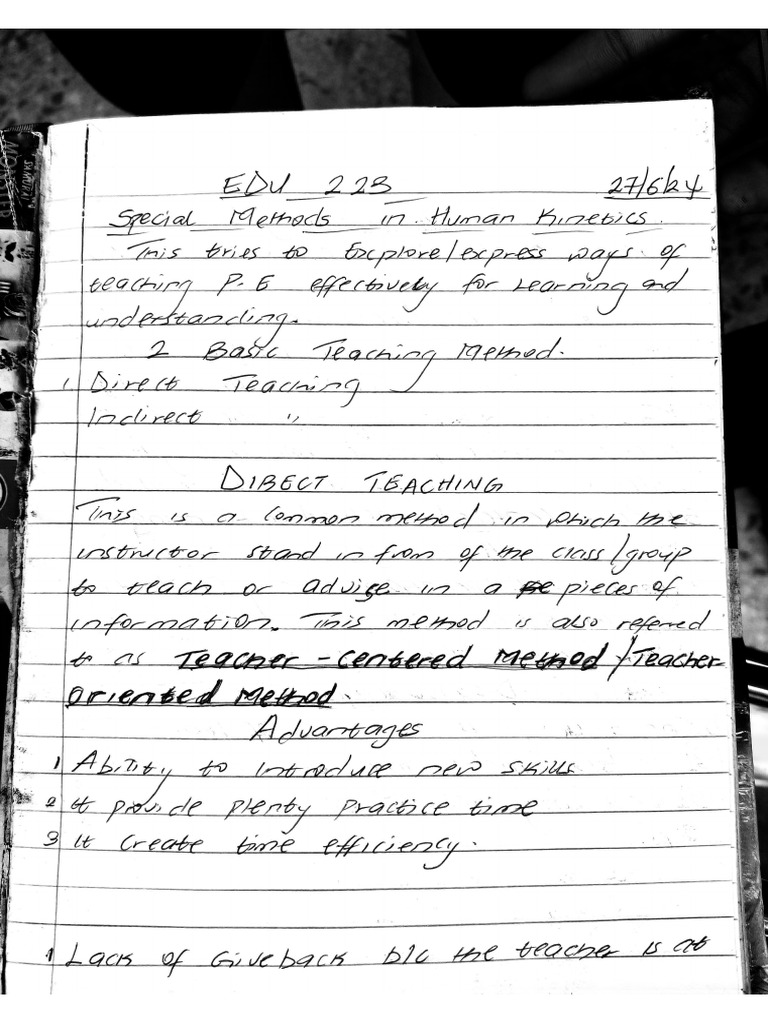 EDU 223 27/6/24
Special Methods in Human Kinetics.
This tries to Explore/express ways of
teaching P.E effectively for Learning and
understanding.
2 Basic Teaching Method.
1. Direct Teaching
Indirect "
DIRECT TEACHING
This is a common method in which the
instructor stand in from of the class/group
to teach or advise in a pieces of
information. This method is also referred
to as Teacher-Centered Method/Teacher
Oriented Method.
Advantages
1 Ability to introduce new skills
2 it provide plenty practice time
3 it create time efficiency.
1 Lack of Giveback b/c the teacher is at